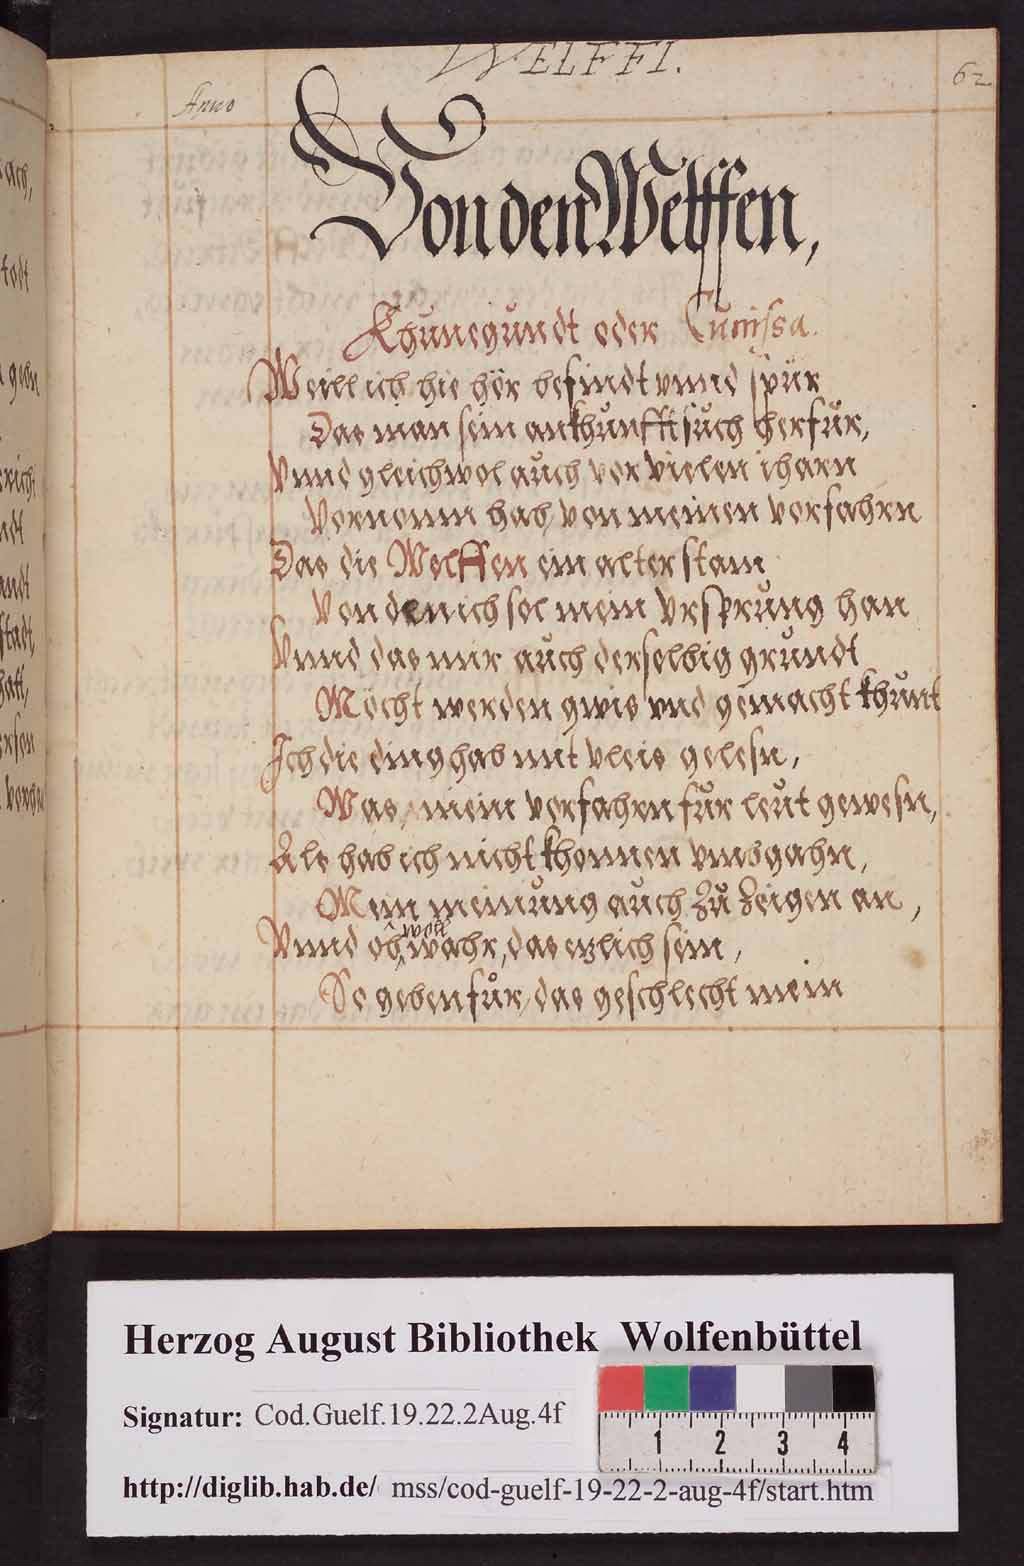 WELFFI.
62
Anno
Von den Welffen,
Khunegundt oder Cunissa.
Weill ich hie hör befindt vnnd spür
Das man sein ankhunfft such herfür,
Vnnd gleichwol auch vor vielen iharn
Vernomm hab, von meinen vorfahrn
Das die Welffen ein alter stam
Von den ich sol mein Vrsprung han
Vnnd das mir auch derselbig grundt
Möcht werden gwis vnd gemacht khunt
Ich die ding hab mit vleis gelesn,
Was, mein vorfahrn für leut gewesn,
Als hab ich nicht khonnen vmbgahn,
Mein meinung auch zu zeigen an,
Vnnd ob woll wahr, das ezlich sein,
So geben für, das geschlecht mein
Herzog August Bibliothek Wolfenbüttel
Signatur: Cod.Guelf.19.22.2Aug.4f
1 2 3 4
http://diglib.hab.de/ mss/cod-guelf-19-22-2-aug-4f/start.htm